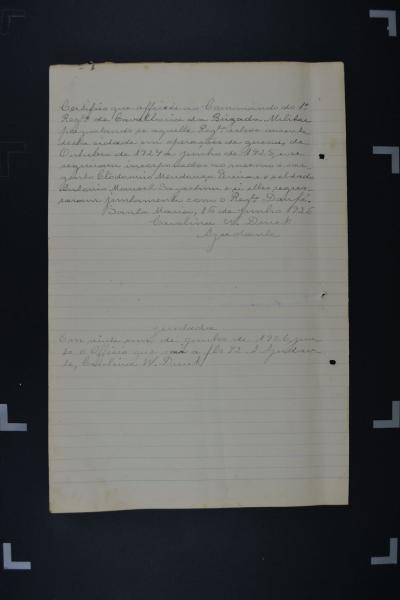 Certifico que officiei ao Commando do 1º
Regtº de Cavallaria da Brigada Militar
perguntando se aquelle Regtº esteve ausente
desta cidade em operações de guerra, de
Outubro de 1924 a Junho de 1925, e se
seguiram incorporados ao mesmo o sar
gento Clodomiro Mendonça Pereira e o soldado
Antonio Manoel e si elles regres-
saram juntamente com o Regtº Doufé.
Santa Maria, 16 de Junho 1926
Carolina W. Druck
Ajudante
Juntada
Em vinte um de Junho de 1926, jun
to o Officio que vai a fls 72. A Ajudan
te, Carolina W. Druck